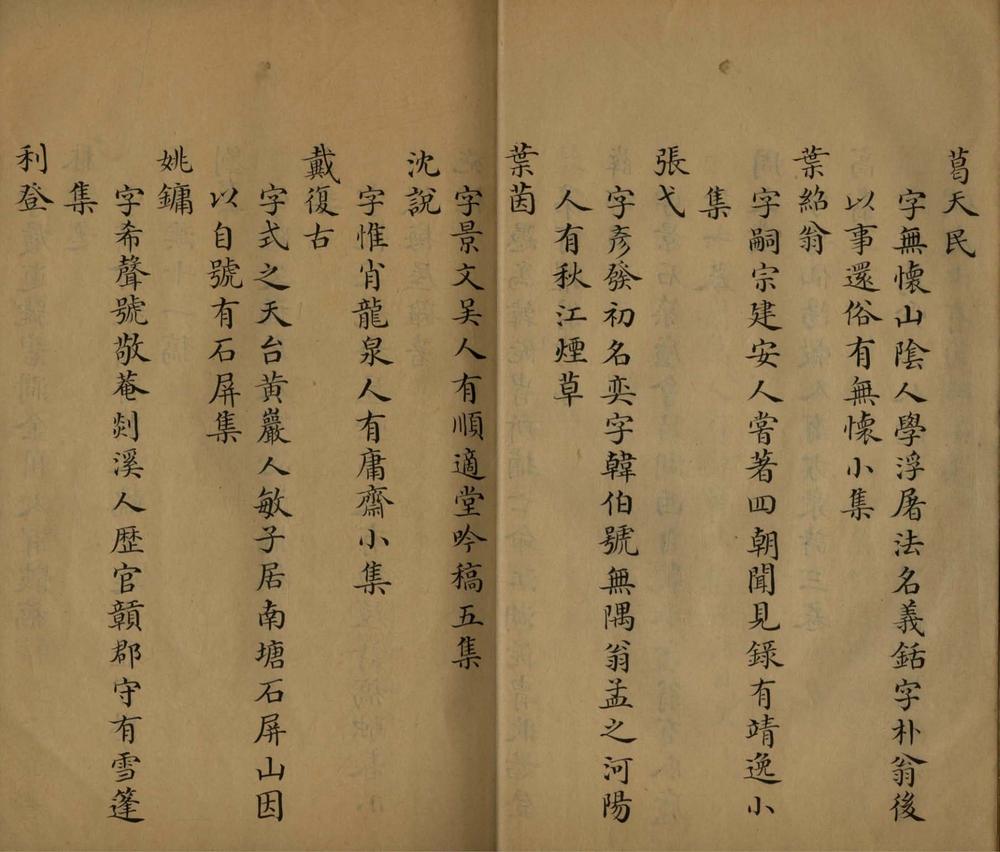 葛天民
字無懷山陰人學浮屠法名義銛字朴翁後
以事還俗有無懷小集
葉紹翁
字嗣宗建安人嘗著四朝聞見錄有靖逸小
集
張弋
字彥發初名奕字韓伯號無隅翁孟之河陽
人有秋江煙草
葉茵
字景文吴人有順適堂吟稿五集
沈説
字惟肖龍泉人有庸齋小集
戴復古
字式之天台黃巖人敏子居南塘石屏山因
以自號有石屏集
姚鏞
字希聲號敬菴剡溪人歷官贛郡守有雪篷
集
利登